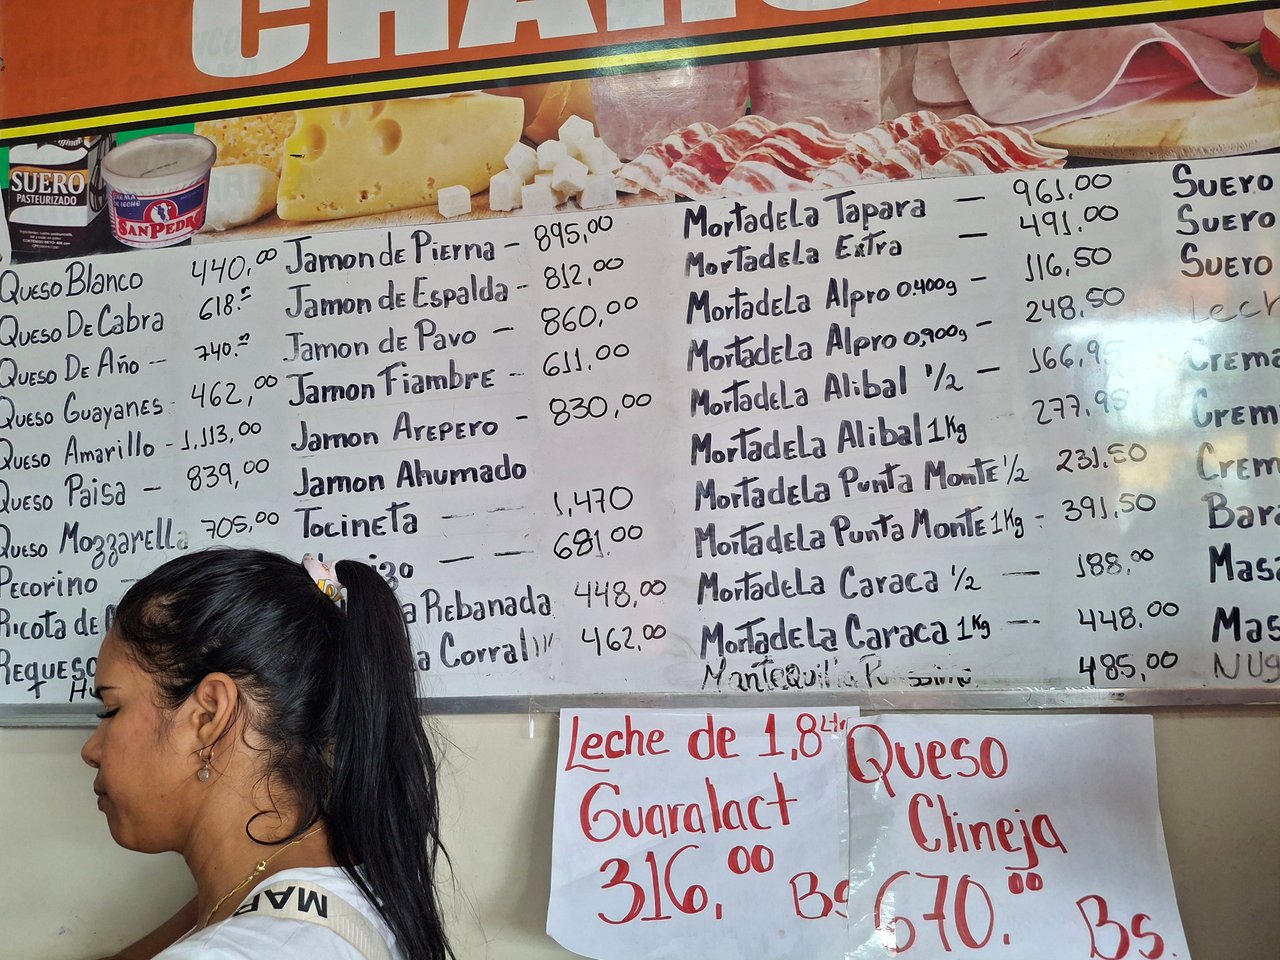 SUERO
PASTEURIZADO
CREMA DE LECHE
SAN PEDRO
Queso Blanco 440,00
Queso De Cabra 618.=
Queso De Año -- 740.=
Queso Guayanes - 462,00
Queso Amarillo - 1,113,00
Queso Paisa - 839,00
Queso Mozzarella 705,00
Pecorino -
Ricota de
Jamon de Pierna - 895,00
Jamon de Espalda - 812,00
Jamon de Pavo - 860,00
Jamon Fiambre - 611,00
Jamon Arepero - 830,00
Jamon Ahumado
Tocineta -- -- 1,470
681.00
Rebanada 448,00
Corral 462,00
Mortadela Tapara - 961,00
Mortadela Extra - 491.00
Mortadela Alpro 0.400g - 116,50
Mortadela Alpro 0,900g - 248,50
Mortadela Alibal 1/2 - 166,95
Mortadela Alibal 1Kg 277,95
Mortadela Punta Monte 1/2 231.50
Mortadela Punta Monte 1Kg - 391,50
Mortadela Caraca 1/2 - 188,00
Mortadela Caraca 1Kg -- 448,00
Mantequilla 485,00
Suero
Suero
Suero
Crema
Crem
Crem
Bar
Masa
Mas
Leche de 1,8 Ltr
Guaralact
316,00 Bs
Queso
Clineja
670.00 Bs.
MAR